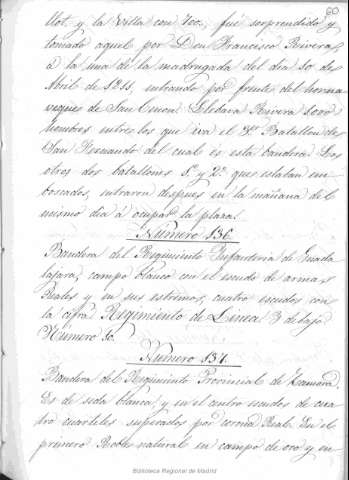 60
llot, y la Villa con 700, fué sorprendido y
tomado aquel por Don Francisco Rivera
á la una de la madrugada del dia 10 de
Abril de 1811, entrando por frente del horna
veque de San Llevaba Rivera 1,000
hombres entre los que iva el Batallon de
San Fernando del cual és esta bandera. Los
otros dos batallones 1º y 2º que estaban em
boscados, entraron despues en la mañana del
mismo dia á ocupar la plaza.
Número 136.
Bandera del Regimiento Infanteria de Guada
lajara, campo blanco con el escudo de armas
Reales y en sus estremos, cuatro escudos con
la cifra Regimiento de Linea 3 debajo
Número 20.
Número 137.
Bandera del Regimiento Provincial de Zamora.
Es de seda blanca, y en el centro escudo de cua
tro cuarteles superados por corona Real. En el
primero Roble natural en campo de oro y en
Biblioteca Regional de Madrid